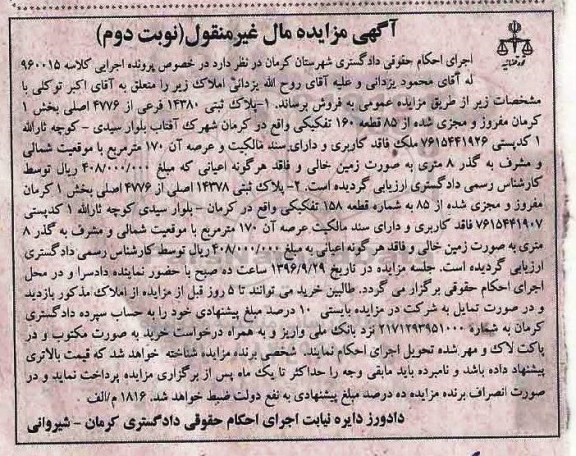 آگهی مزایده مال غیرمنقول(نوبت دوم)
اجرای احکام حقوقی دادگستری شهرستان کرمان در نظر دارد در خصوص پرونده اجرایی کلاسه ۹۶۰۰۱۵
له آقای محمود یزدانی و علیه آقای روح الله یزدانی املاک زیر را متعلق به آقای اکبر توکلی با
مشخصات زیر از طریق مزایده عمومی به فروش برساند. ۱-پلاک ثبتی ۱۴۳۸۰ فرعی از ۴۷۷۶ اصلی بخش ۱
کرمان مفروز و مجزی شده از ۸۵ قطعه ۱۶۰ تفکیکی واقع در کرمان شهرک آفتاب بلوار سیدی - کوچه ثارالله
۱ کدپستی ۷۶۱۵۴۴۱۹۲۶ ملک فاقد کاربری و دارای سند مالکیت و عرصه آن ۱۷۰ مترمربع با موقعیت شمالی
و مشرف به گذر ۸ متری به صورت زمین خالی و فاقد هرگونه اعیانی که مبلغ ۴۰۸/۰۰۰/۰۰۰ ریال توسط
کارشناس رسمی دادگستری ارزیابی گردیده است. ۲- پلاک ثبتی ۱۴۳۷۸ اصلی از ۴۷۷۶ اصلی بخش ۱ کرمان
مفروز و مجزی شده از ۸۵ به شماره قطعه ۱۵۸ تفکیکی واقع در کرمان - بلوار سیدی کوچه ثارالله ۱ کدپستی
۷۶۱۵۴۴۱۹۰۷ فاقد کاربری و دارای سند مالکیت عرصه آن ۱۷۰ مترمربع با موقعیت شمالی و مشرف به گذر ۸
متری به صورت زمین خالی و فاقد هر گونه اعیانی به مبلغ ۴۰۸/۰۰۰/۰۰۰ ریال توسط کارشناس رسمی دادگستری
ارزیابی گردیده است. جلسه مزایده در تاریخ ۱۳۹۶/۹/۲۹ ساعت ده صبح با حضور نماینده دادسرا و در محل
اجرای احکام حقوقی برگزار می گردد. طالبین خرید می توانند تا ۵ روز قبل از مزایده از املاک مذکور بازدید
و در صورت تمایل به شرکت در مزایده بایستی ۱۰ درصد مبلغ پیشنهادی خود را به حساب سپرده دادگستری
کرمان به شماره ۲۱۷۱۲۹۳۹۵۱۰۰۰ نزد بانک ملی واریز و به همراه درخواست خرید به صورت مکتوب و در
پاکت لاک و مهر شده تحویل اجرای احکام نمایند. شخصی برنده مزایده شناخته خواهد شد که قیمت بالاتری
پیشنهاد داده باشد و نامبرده باید مابقی وجه را حداکثر تا یک ماه پس از برگزاری مزایده پرداخت نماید و در
صورت انصراف برنده مزایده ده درصد مبلغ پیشنهادی به نفع دولت ضبط خواهد شد. ۱۸۱۶ م/الف
دادورز دایره نیابت اجرای احکام حقوقی دادگستری کرمان - شیروانی